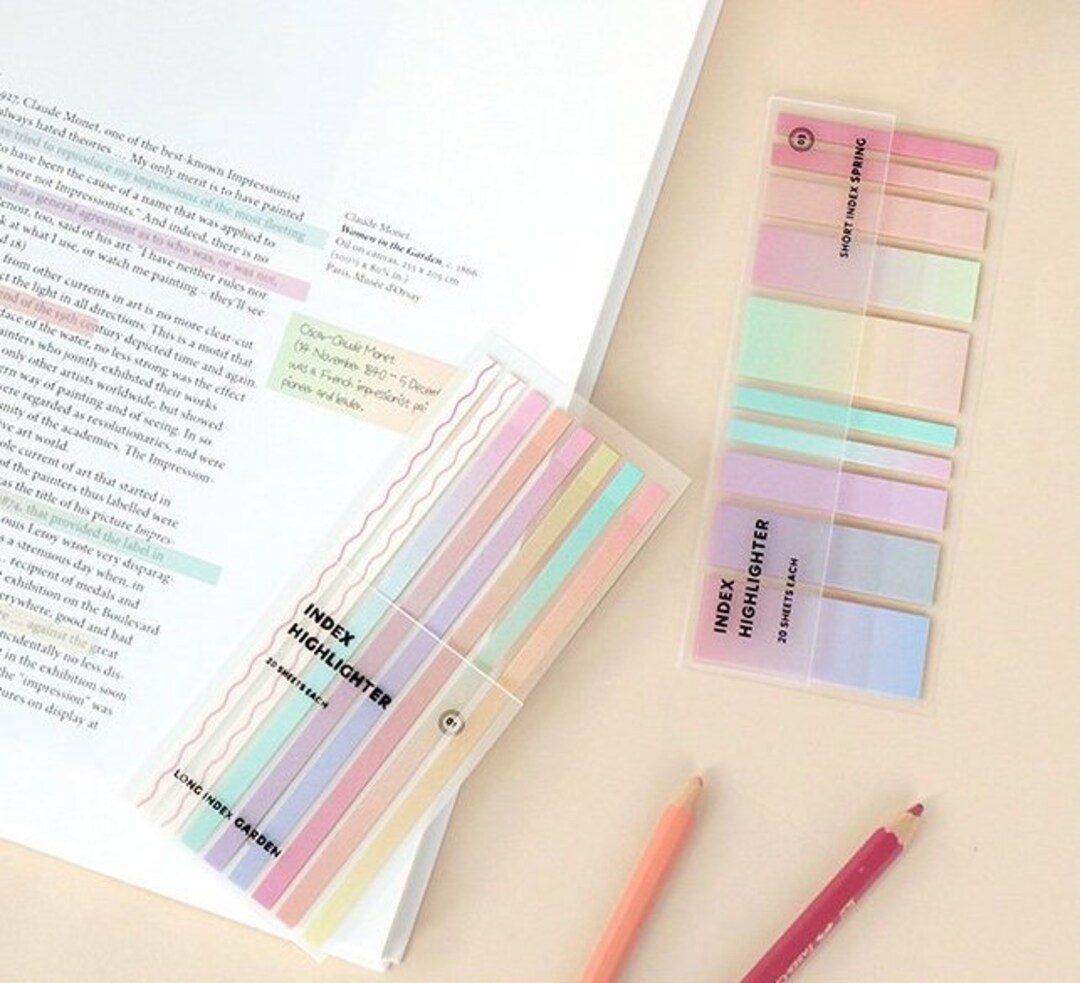 927. Claude Monet, one of the best-known Impressionist
always hated theories ... My only merit is to have painted
we tried to reproduce my impressions of the most fleeting
to have been the cause of a name that was applied to
s were not Impressionists." And indeed, there is no
and no general agreement as to who was, or was not,
enoir, too, said of his art: "I have neither rules nor
k at what I use, or watch me painting – they'll see
d 18)
from other currents in art is no more clear-cut
ct the light in all directions. This is a motif that
end of the 19th century depicted time and again.
face of the water, no less strong was the effect
ainters who jointly exhibited their works
only other artists worldwide, but showed
ern way of painting and of seeing. In so
were regarded as revolutionaries, and were
unity of the academies. The Impression-
ive art world.
ole current of art that started in
of the painters thus labelled were
as the title of his picture Impres-
1874, that provided the label in
Louis Leroy wrote very disparag-
s a strenuous day when, in
recipient of medals and
exhibition on the Boulevard
erywhere, good and bad
against the great
incidentally no less dis-
in the exhibition soon
the "impression" was
tures on display at
Claude Monet
Women in the Garden, c. 1866
Oil on canvas, 255 x 205 cm
(100½ x 80¾ in.)
Paris, Musée d'Orsay
Oscar-Claude Monet
(14 November 1840 – 5 Decem
was a French impressionist pai
pioneer and leader.
INDEX
HIGHLIGHTER
20 SHEETS EACH
01
LONG INDEX GARDEN
03
SHORT INDEX SPRING
INDEX
HIGHLIGHTER
20 SHEETS EACH